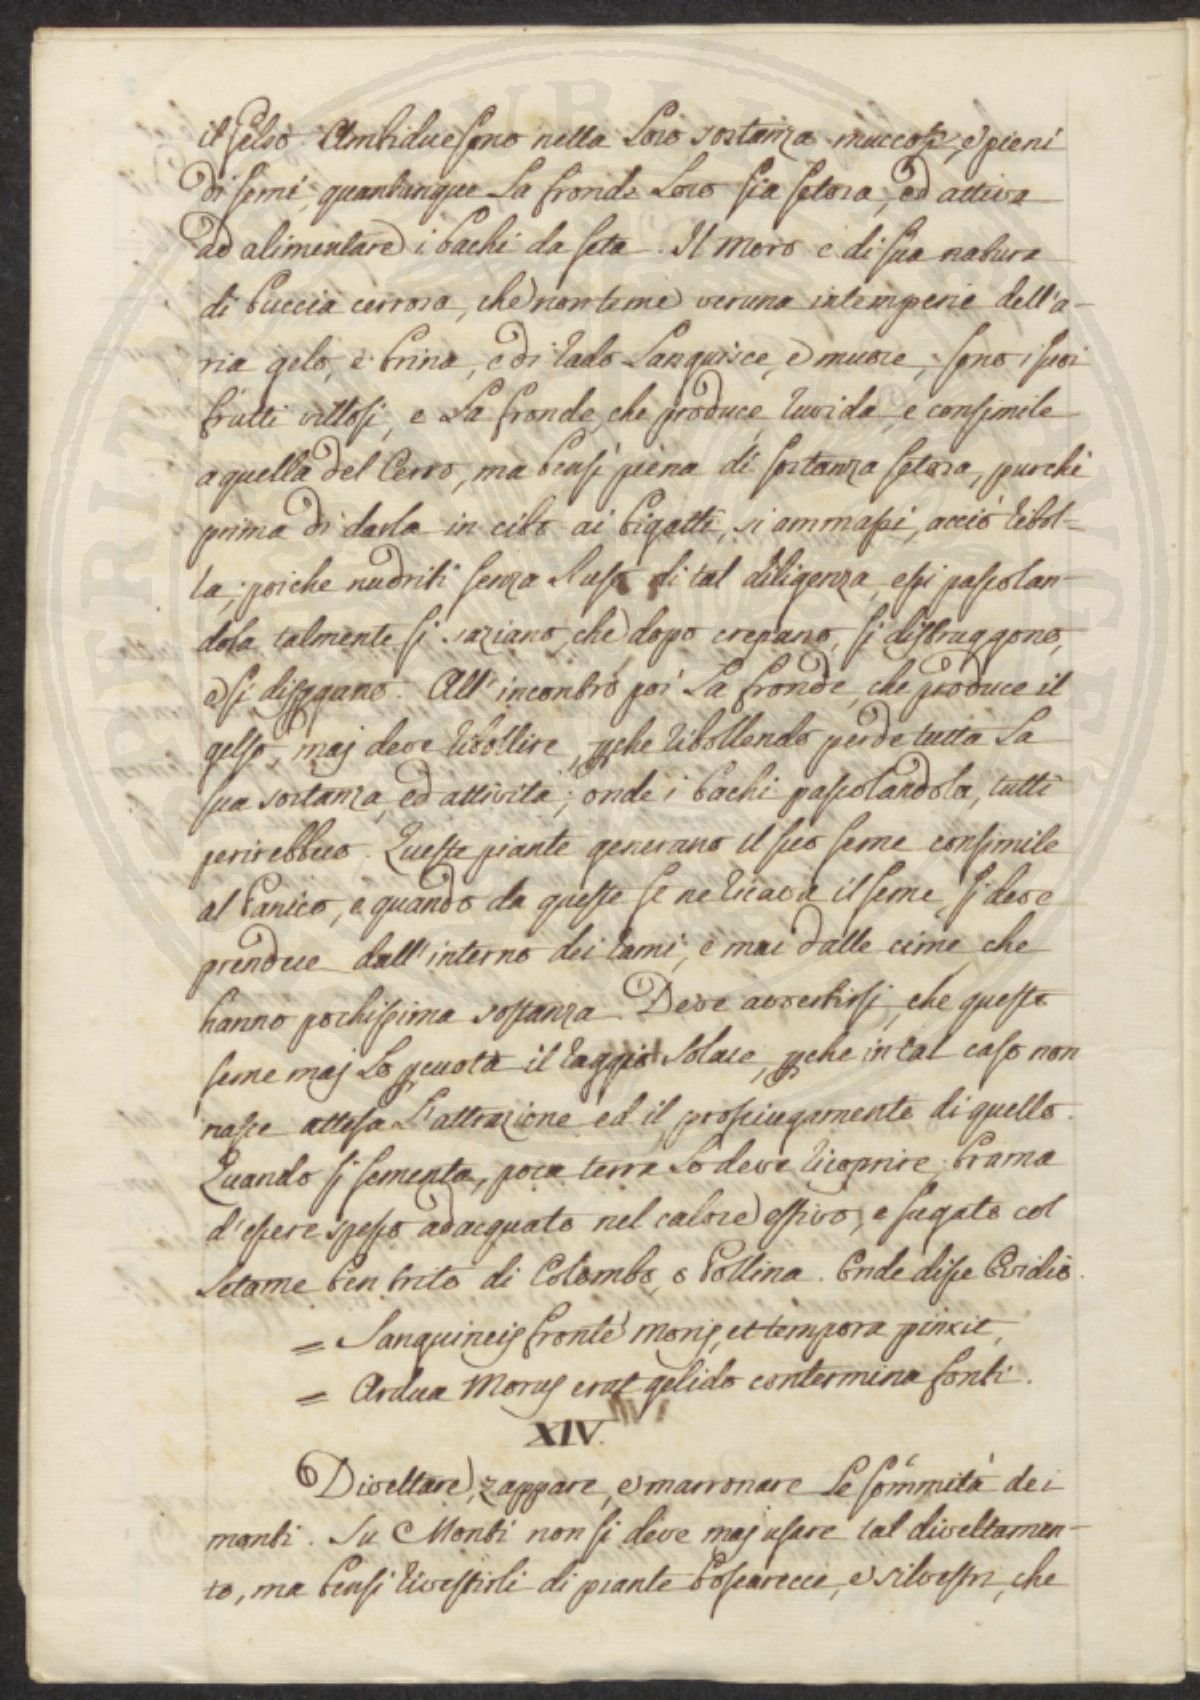 il Gelso. Ambidue sono nella loro sostanza muccosi, e pieni
di semi, quantunque la fronde loro sia setosa, ed attiva
ad alimentare i bachi da seta. Il Moro è di sua natura
di buccia cerrosa, che non teme veruna intemperie dell'a-
ria gelo, e brina, e di rado languisce, e muore, sono i suoi
frutti villosi, e la fronde, che produce, ruvida, e consimile
a quella del Cerro, ma bensì piena di sostanza setosa, purchè
prima di darla in cibo ai bigatti, si ammassi, acciò ribol-
la; poiche nudriti senza l'uso di tal diligenza, essi pascolan-
dola talmente si saziano, che dopo crepano, si distruggono,
e si disgguano. All'incontro poi la fronde, che produce il
gelso, maj deve ribollire, pche ribollendo perde tutta la
sua sostanza, ed attività; onde i bachi pascolandola, tutti
perirebbero. Queste piante generano il suo seme consimile
al Panico, e quando da queste se ne ricava il seme, si deve
prendere dall'interno dei rami, e mai dalle cime, che
hanno pochissima sostanza. Deve avvertirsi, che questo
seme maj lo pcuota il raggio solare, pche in tal caso non
nasce attesa l'attrazione ed il prosciugamento di quello.
Quando si sementa, poca terra lo deve ricoprire; brama
d'essere spesso adacquato nel calore estivo, e fugato col
letame ben trito di Colombo, o Pollina. Onde disse Ovidio.
= Sanguineis fronte moris, et tempora pinxit,
= Ardua Morus erat gelido contermina fonti.
XIV.
Diveltare, zappare, e marronare le sommità dei
monti. Su Monti non si deve maj usare tal diveltamen-
to, ma bensi rivestirli di piante boscarecce, e silvestri, che